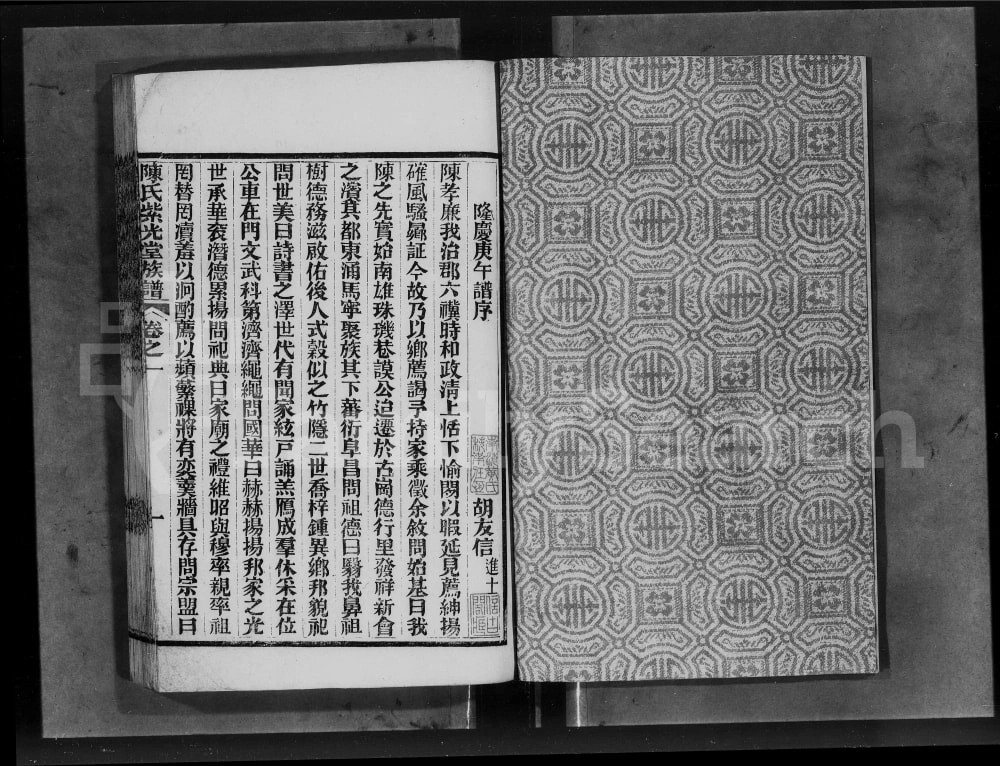 隆慶庚午譜序
胡友信 進士
陳孝廉我治郡六禩時和政清上恬下愉閟以暇延見薦紳揚
確風騷屬証今故乃以鄉薦謁予持家乘徵余敘問始基曰我
陳之先實始南雄珠璣巷謨公迨遷於古崗德行里發祥新會
之濱其都東涌馬寧聚族其下蕃衍阜昌問祖德曰翳我鼻祖
樹德務滋啟佑後人式穀似之竹隱二世喬梓鍾異鄉邦貌祀
問世美曰詩書之澤世代有聞家絃戶誦羔鴈成羣休采在位
公車在門文武科第濟濟繩繩問國華曰赫赫揚揚邦家之光
世承華袞潛德累揚問祀典曰家廟之禮維昭與穆率親率祖
罔替罔瀆羞以泂酌薦以蘋蘩祼將有奕羹牆具存問宗盟曰
陳氏紫光堂族譜 卷之一 一